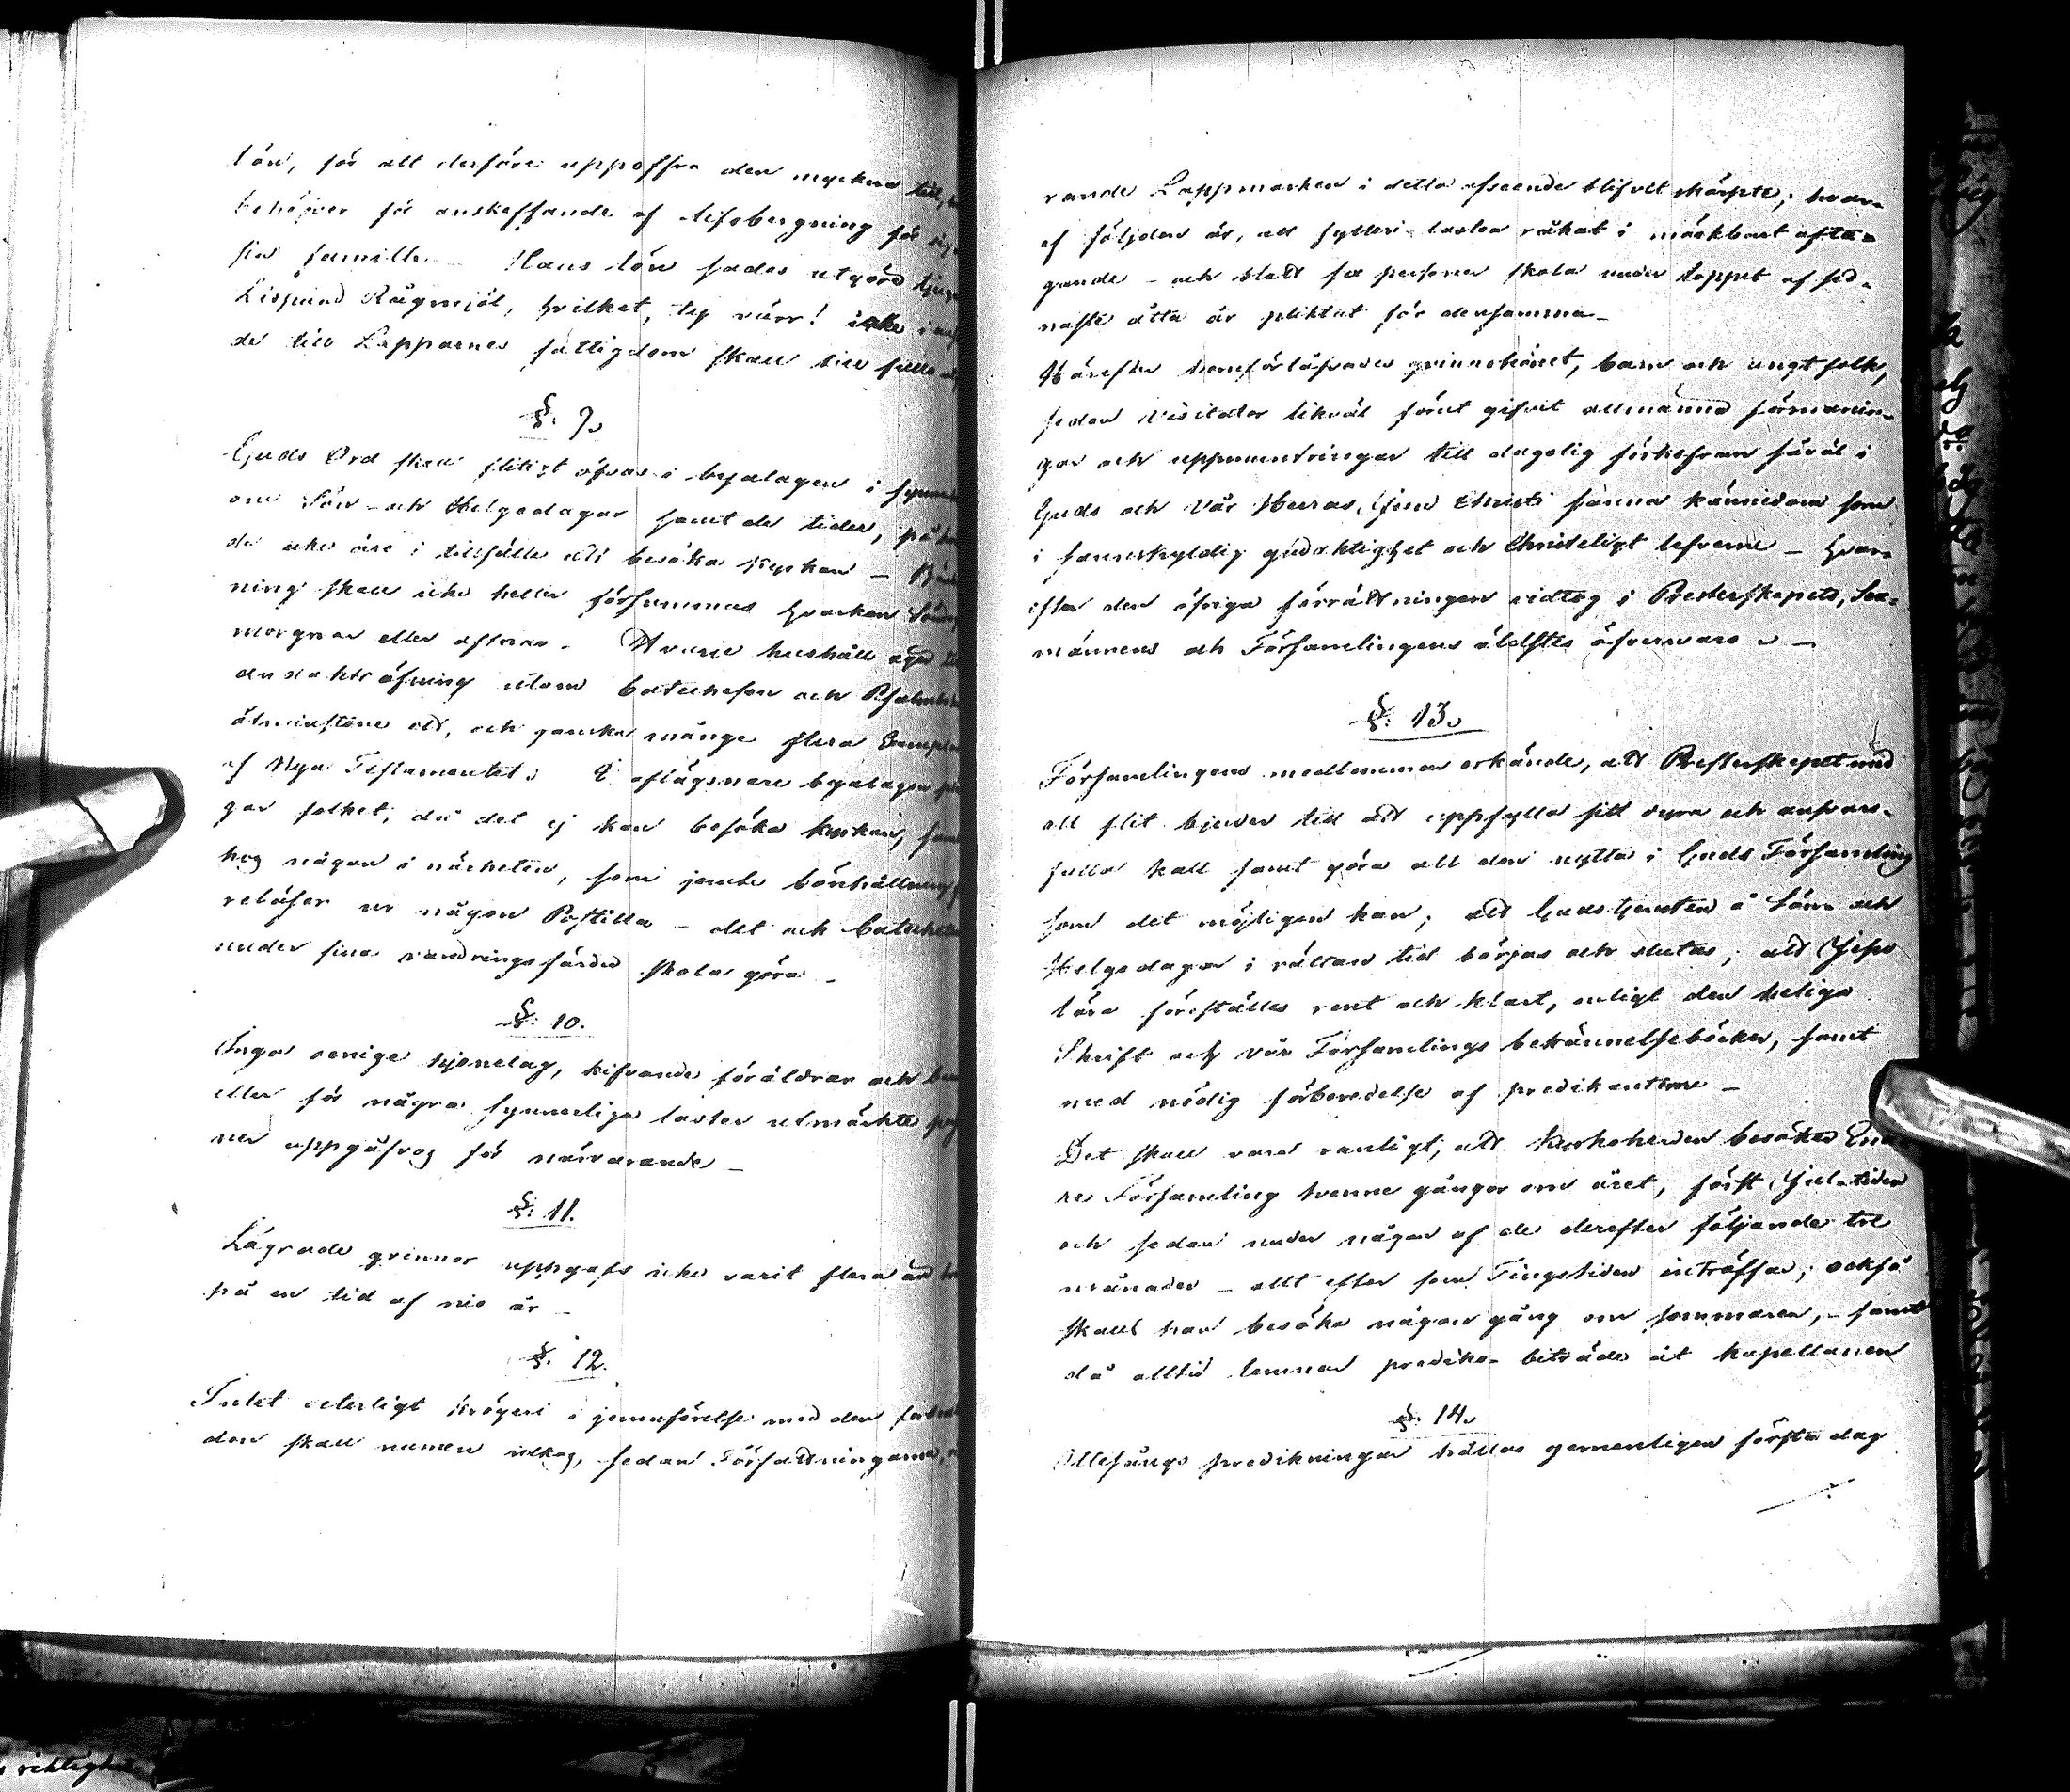 lön, för att derföre uppoffra den myckna tid,
behöfver för anskaffande af lifsbergning för sig
sin familler. Hans lön sades utgöra tjugu
Lispund Rågmjöl, hvilket, ty värr! icke i an
de till Lapparnes fattigdom skall till fullo
§. 9.
Guds Ord skall flitigt öfvas i byalagen i synner
om Sön- och Helgedagar samt de tider, på
de icke äro i tillfälle att besöka kyrkan –
ning skall icke heller försummas hvarken
morgnar eller aftnar. Hvarje hushåll äger
andaktsöfning utom Catechesen och Psalm
åtminstone ett, och ganska många flera Exempla
af Nya Testamentet. I aflägsnare byalagen
gar folket, då det ej kan besöka kyrkan,
hos någon i närheten, som jemte bönhållning
reläser ur någon Postilla – det och Catechet
under sina vandringsfärder skola göra –
§. 10.
Inga oenige hjonelag, kifvande föräldrar och
eller för några synnerliga laster utmärkte
ner uppgåfvos för närvarande –
§. 11.
Lägrade qvinnor uppgafs icke varit flera än
på en tid af nio år –
§. 12.
Intet veterligt krögeri i jemnförelse med den
den skall numera idkas, sedan Författningarne,
rande Lappmarken i detta afseende blifvit skärpte; hvar-
af följden är, att fylleri-lasten råkat i märkbart afta-
gande – och blott sex personer skola under loppet af sed-
naste åtta år pliktat för densamma –
Härefter hemförlofvades qvinnokönet, barn och ungt folk,
sedan Visitator likväl förut gifvit allmänna förmanin-
gar och uppmuntringar till dagelig förkofran såväl i
Guds och Vår Herras, Jesu Christi sanna kännedom som
i sannskyldig gudaktighet och Christeligt lefverne – hvar-
efter den öfriga förrättningen vidtog i Presterskapets, Sex-
männens och Församlingens äldstes öfvervaro. –
§. 13.
Församlingens medlemmar erkände, att Presterskapet med
all flit bjuder till att uppfylla sitt dyra och ansvars-
fulla kall samt göra all den nytta i Guds Församling
som det möjligen kan; att Gudstjensten å Sön- och
Helgedagar i rättan tid börjas och slutas; att Jesu
lära föreställes rent och klart, enligt den heliga
Skrift och vår Församlings bekännelseböcker, samt
med nödig förberedelse af predikanterne –
Det skall vara vanligt, att kyrkoherden besöker Ena-
re Församling tvenne gånger om året, först Jul-tiden
och sedan under någon af de derefter följande tre
månader – allt efter som Tingstiden inträffar; också
skall han besöka någon gång om sommaren, – samt
då alltid lemnar prediko-biträde åt kapellanen
§. 14.
Ottesångs predikningar hållas gemenligen första dag